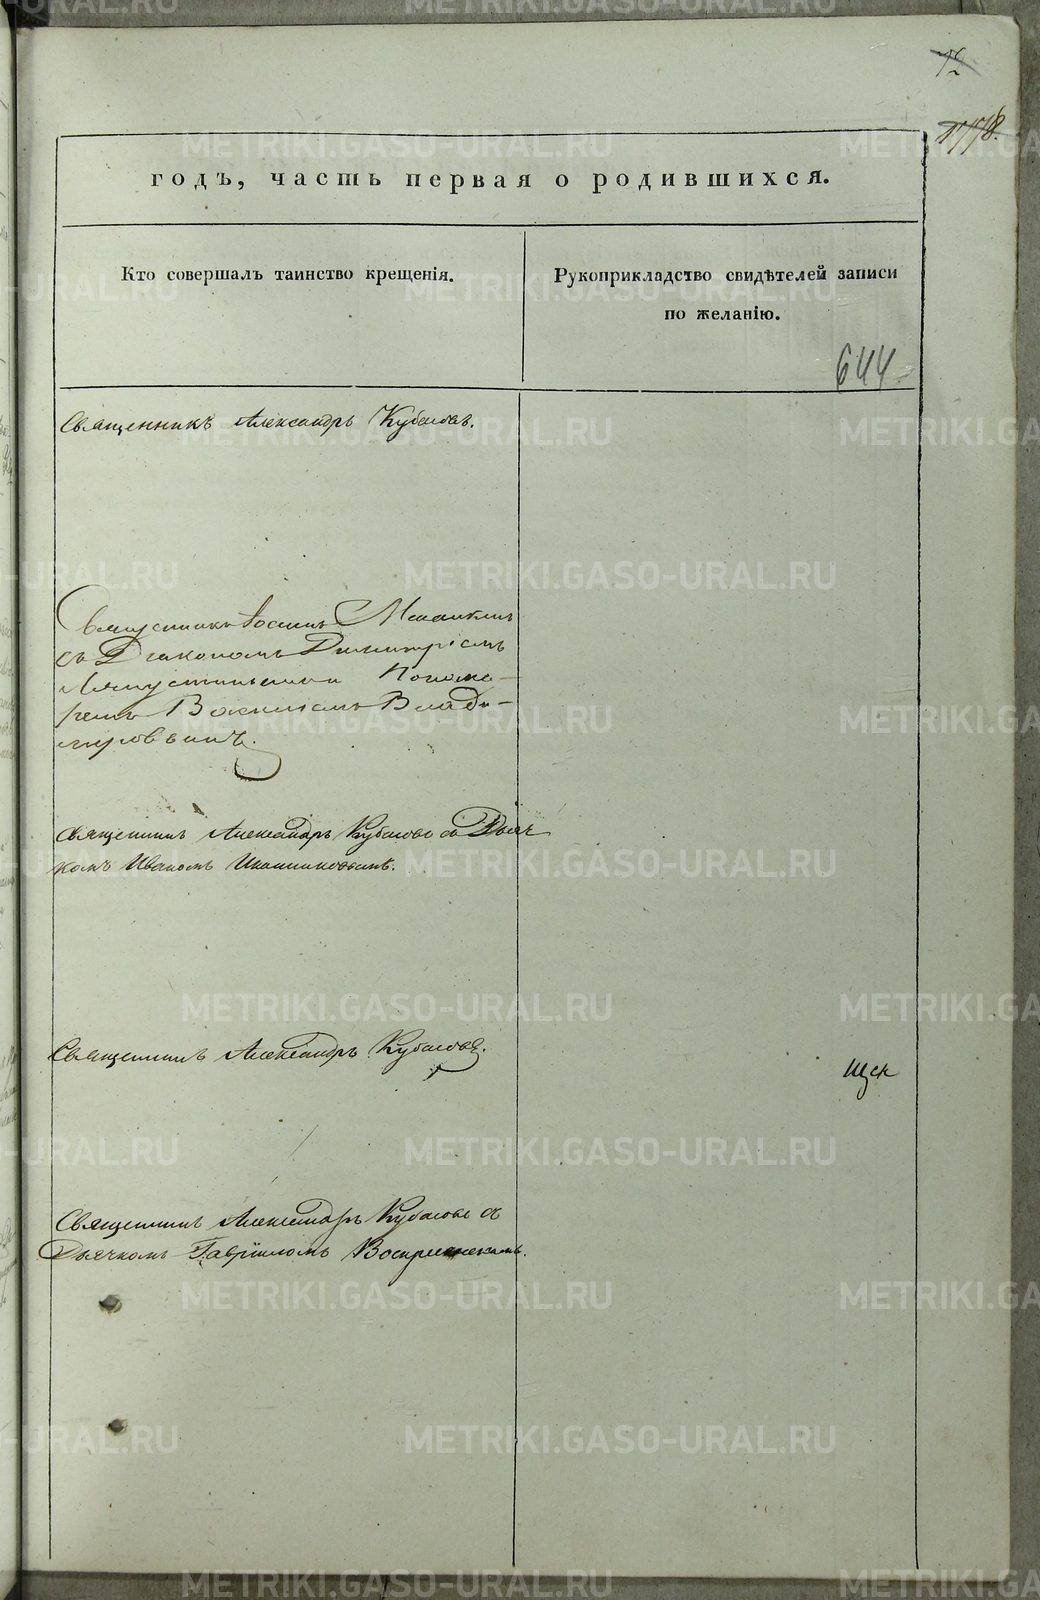 12
годъ, часть первая о родившихся.
Кто совершалъ таинство крещенія.
Рукоприкладство свидѣтелей записи
по желанію.
644
Священникъ Александръ Кубасовъ.
Священникъ Іоаннъ
съ Діакономъ Димитріемъ
и Понома-
ремъ Василіемъ Влади-
міровымъ.
Священникъ Александръ Кубасовъ съ Дьяч
комъ Иваномъ Иконниковымъ.
Священникъ Александръ Кубасовъ.
Священникъ Александръ Кубасовъ съ
Дьячкомъ Гавріиломъ Воскресенскимъ.
METRIKI.GASO-URAL.RU